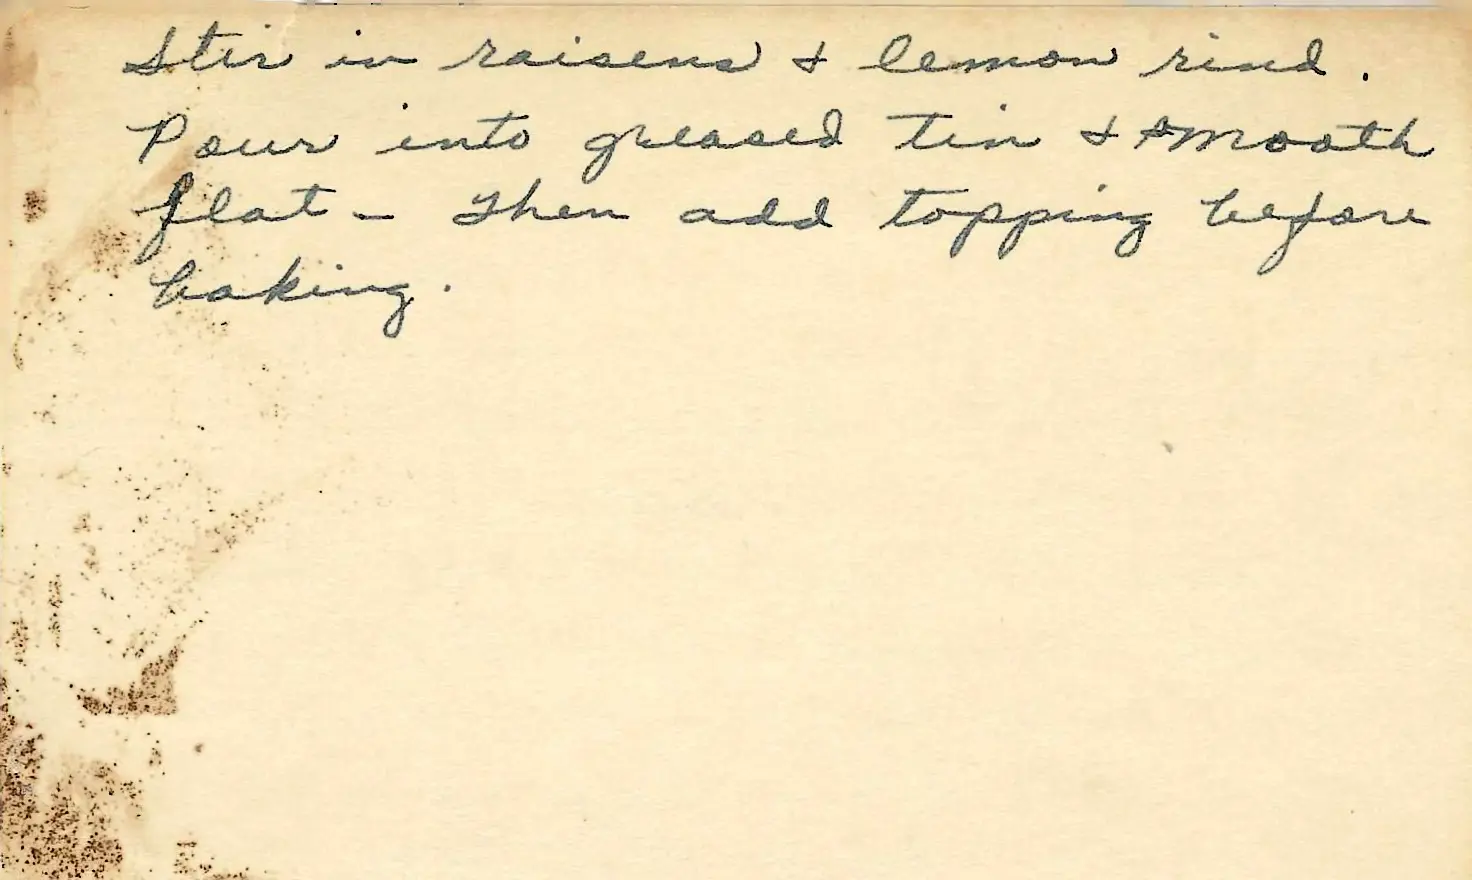 Stir in raisens & lemon rind.
Pour into greased tin & smooth
flat - Then add topping before
baking.